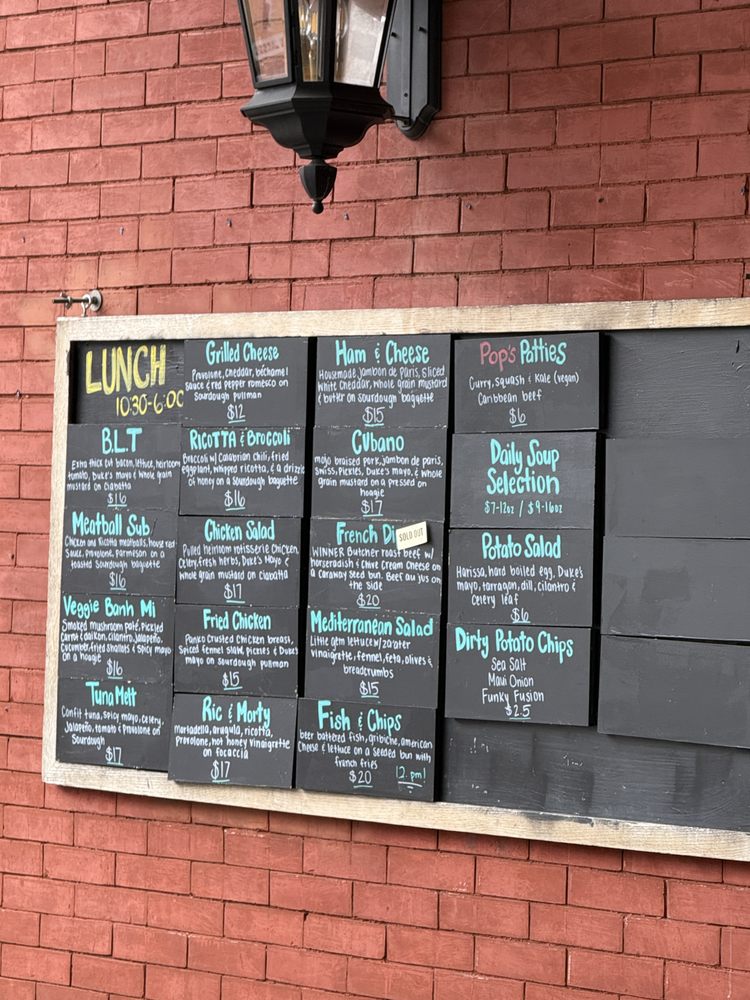 LUNCH
10:30-6:00
B.L.T
Extra thick cut bacon, lettuce, heirloom
tomato, Duke's mayo & whole grain
mustard on ciabatta
$16
Meatball Sub
Chicken and Ricotta meatballs, house red
Sauce, provolone, parmesan on a
toasted Sourdough baguette
$16
Veggie Banh Mi
Smoked mushroom paté, Pickled
Carrot & daikon, cilantro, jalapeño,
Cucumber, fried shallots & spicy mayo
on a hoagie
$16
Tuna Melt
Confit tuna, spicy mayo, celery,
Jalapeño, tomato & provolone on
Sourdough
$17
Grilled Cheese
Provolone, cheddar, béchamel
sauce & red pepper romesco on
Sourdough pullman
$12
RICOTTA & Broccoli
Broccoli w/ Calabrian chili, fried
eggplant, whipped ricotta, & a drizzle
of honey on a sourdough baguette
$16
Chicken Salad
Pulled heirloom rotisserie Chicken,
Celery, fresh herbs, Duke's Mayo &
whole grain mustard on ciabatta
$17
Fried Chicken
Panko Crusted Chicken breast,
Spiced fennel slaw, pickles & Duke's
mayo on sourdough pullman
$15
Ric & Morty
mortadella, arugula, ricotta,
provolone, hot honey vinaigrette
on focaccia
$17
Ham & Cheese
Housemade jambon de Paris, sliced
white cheddar, whole grain mustard
& butter on sourdough baguette
$15
Cubano
mojo braised pork, jambon de paris,
swiss, pickles, Duke's mayo, & whole
grain mustard on a pressed on
hoagie
$17
French Di
SOLD OUT
WINNER Butcher roast beef w/
horseradish & Chive Cream Cheese on
a caraway seed bun. Beef au jus on
the side
$20
Mediterranean Salad
Little gem lettuce w/
vinaigrette, fennel, feta, olives &
breadcrumbs
$15
Fish & Chips
beer battered fish, gribiche, american
Cheese & lettuce on a seeded bun with
french fries
$20
12 pm!
Pop's Patties
Curry, squash & Kale (vegan)
Caribbean beef
$6
Daily Soup
Selection
$7-12oz / $9-16oz
Potato Salad
Harissa, hard boiled egg, Duke's
mayo, tarragon, dill, cilantro &
celery leaf
$6
Dirty Potato Chips
Sea Salt
Maui Onion
Funky Fusion
$2.5